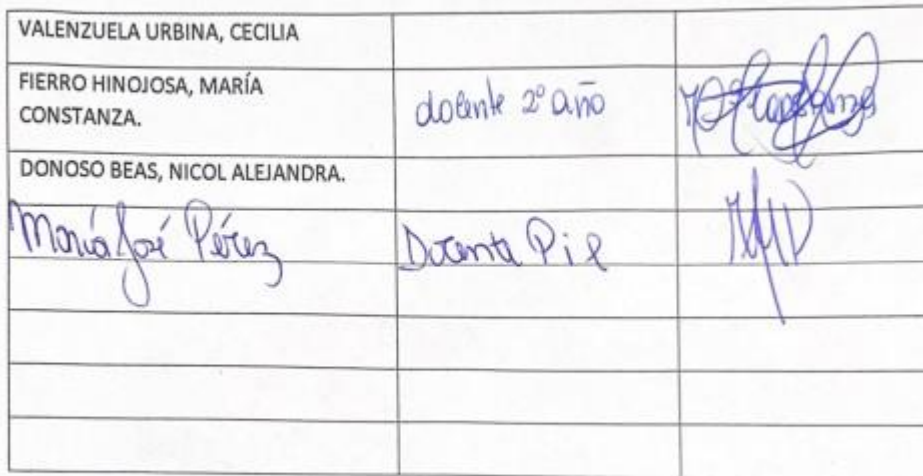 VALENZUELA URBINA, CECILIA
FIERRO HINOJOSA, MARÍA
CONSTANZA.
docente 2º año
DONOSO BEAS, NICOL ALEJANDRA.
María José Pérez
Docente Pie